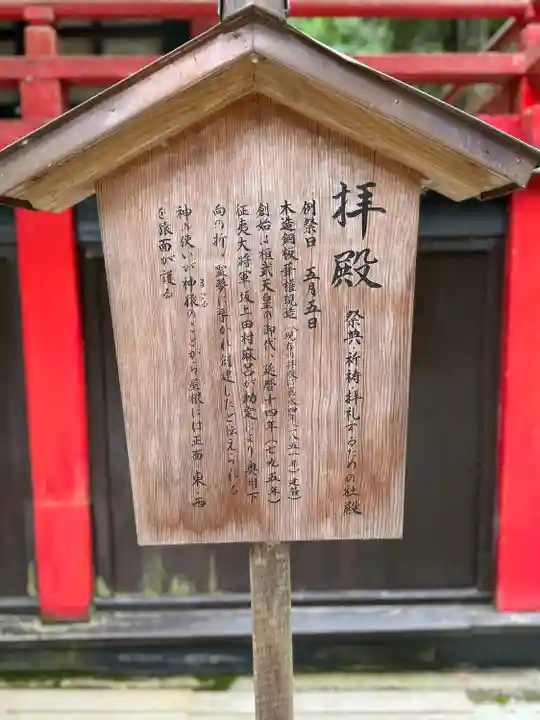 拝殿 祭典・祈祷・拝礼するための社殿
例祭日 五月五日
木造銅板葺権現造(現在の拝殿は嘉永四年(一八五一年)建築)
創始は桓武天皇の御代、延暦十四年(七九五年)
征夷大将軍坂上田村麻呂が勅定により奥州下
向の折、霊夢に導かれ創建したと伝えられる
神の使いが神猿のことから屋根には正面、東・西
を猿面が護る